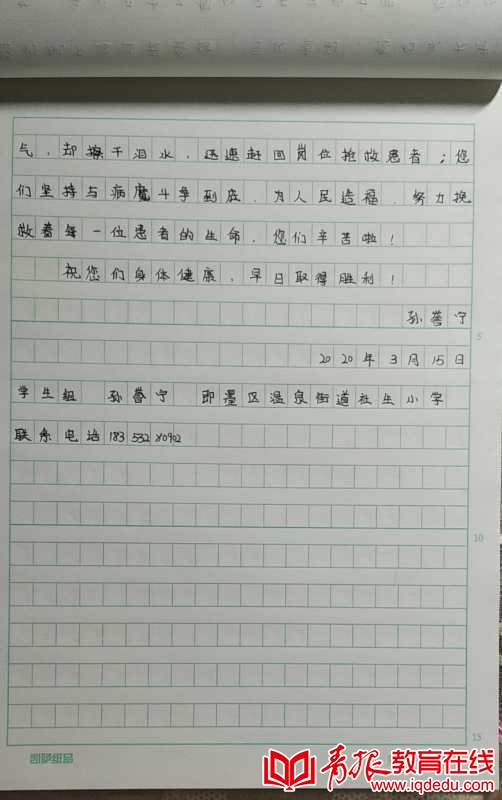 气，却擦干泪水，迅速赶回岗位抢救患者；您
们坚持与病魔斗争到底，为人民造福，努力挽
救着每一位患者的生命，您们辛苦啦！
祝您们身体健康，早日取得胜利！
孙誉宁
5
2020年3月15日
学生组 孙誉宁 即墨区温泉街道社生小学
联系电话 183532
10
15
凯萨纸品
青报教育在线
www.iqdedu.com